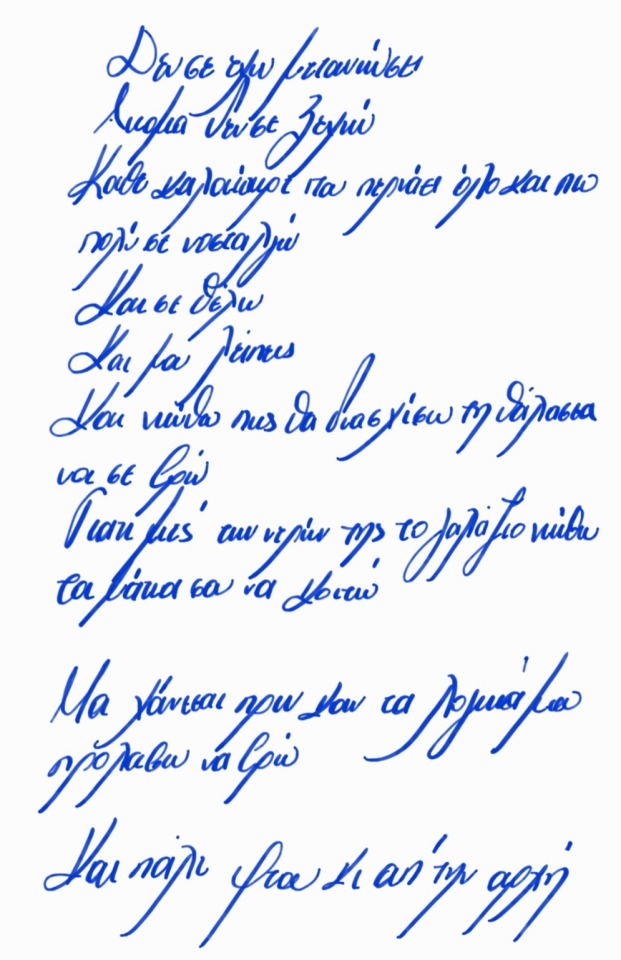 Δεν σε έχω μετανιώσει
Ακόμα δεν σε ξεχνώ
Κάθε καλοκαίρι που περνάει όλο και πιο
πολύ σε νοσταλγώ
Και σε θέλω
Και μου λείπεις
Και νιώθω πως θα διασχίσω τη θάλασσα
να σε βρώ
Γιατί μές των νερών της το γαλάζιο νιώθω
τα μάτια σου να κοιτώ
Μα χάνεσαι πριν καν τα λογικά μου
προλάβω να βρώ
Και πάλι φτου κι απ' την αρχή